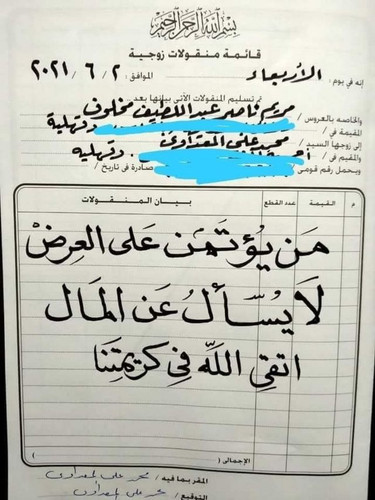 بسم الله الرحمن الرحيم
قائمة منقولات زوجية
إنه في يوم : الأربعاء الموافق : ٢ / ٦ / ٢٠٢١
تم تسليم المنقولات الآتى بيانها بعد
والخاصه بالعروس / مريم ناصر عبد اللطيف مخلوف
المقيمة في / دقهلية
إلى زوجها السيد / محمد على المعداوى
والمقيم فى / دقهليه
ويحمل رقم قومى صادرة فى تاريخ /
م القيمة عدد القطع بيان المنقولات
مَن يُؤتَمَن عَلى العِرضْ
لَا يُسّألُ عَن المَال
اتقِي اللَّه فِي كَريمَتِنَا
الإجمالى ( )
المقر بما فيه / محمد على المعداوى
التوقيع / محمد على المعداوى